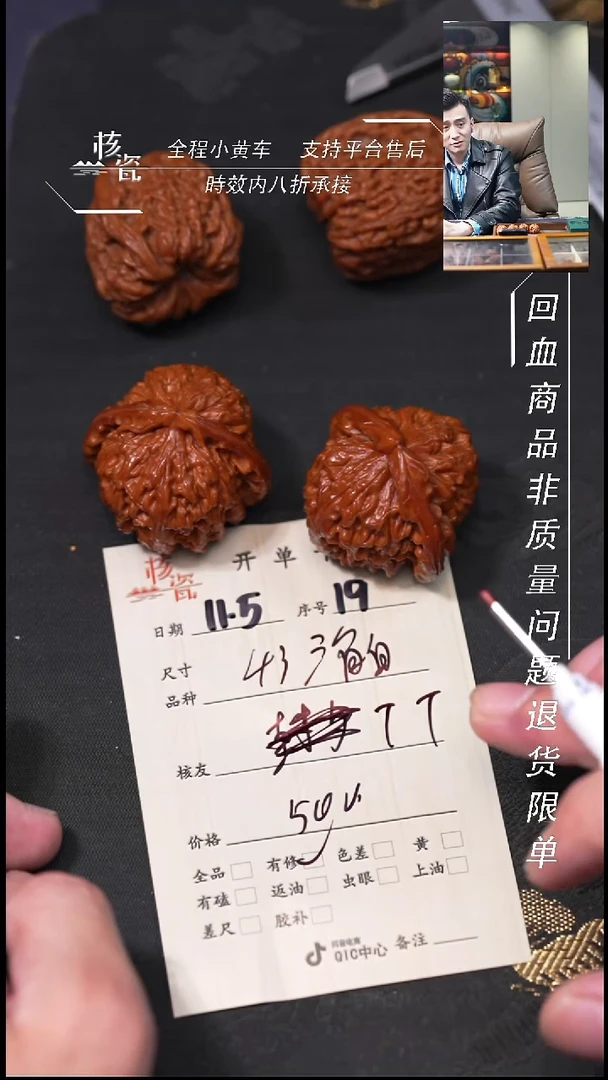 核瓷
全程小黄车 支持平台售后
時效内八折承接
回血商品非质量问题退货限单
核瓷
开单
日期 11.5 序号 19
尺寸 43
品种
核友 TT
价格 500
全品 有修 色差 黄
有磕 返油 虫眼 上油
差尺 胶补
抖音电商
QIC中心 备注